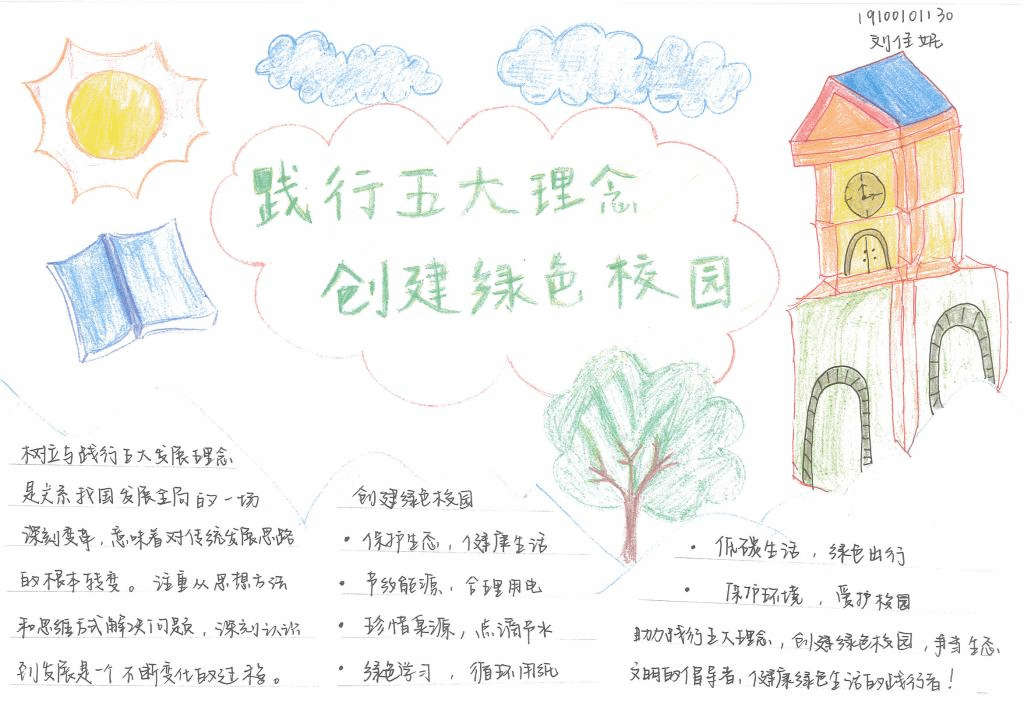 19100101130
刘佳妮
践行五大理念
创建绿色校园
树立与践行五大发展理念
是关系我国发展全局的一场
深刻变革,意味着对传统发展思路
的根本转变。注重从思想方法
和思维方式解决问题,深刻认识
到发展是一个不断变化的过程。
创建绿色校园
• 保护生态,健康生活
• 节约能源,合理用电
• 珍惜某源,点滴节水
• 绿色学习,循环用纸
• 低碳生活,绿色出行
• 保护环境,爱护校园
助力践行五大理念,创建绿色校园,争当生态
文明的倡导者,健康绿色生活的践行者!